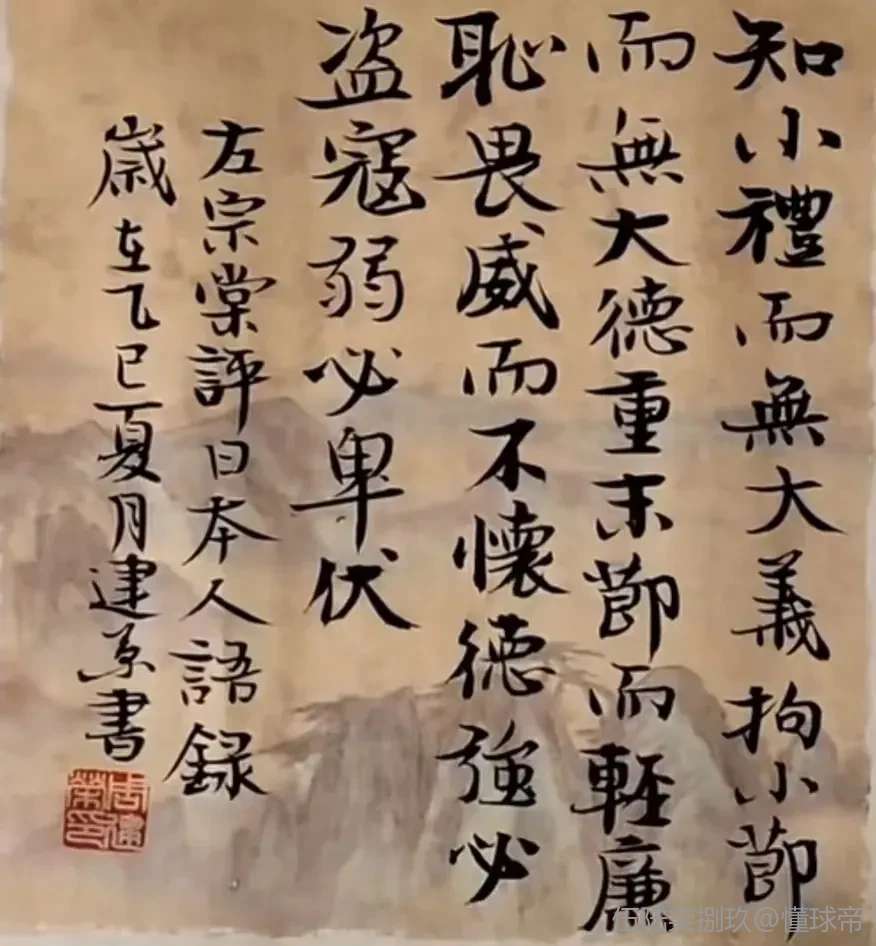 知小禮而無大義拘小節
而無大德重末節而輕廉
恥畏威而不懷德強必
盗寇弱必卑伏
左宗棠評日本人語錄
歲在乙巳夏月建榮書
捌玖@懂球帝